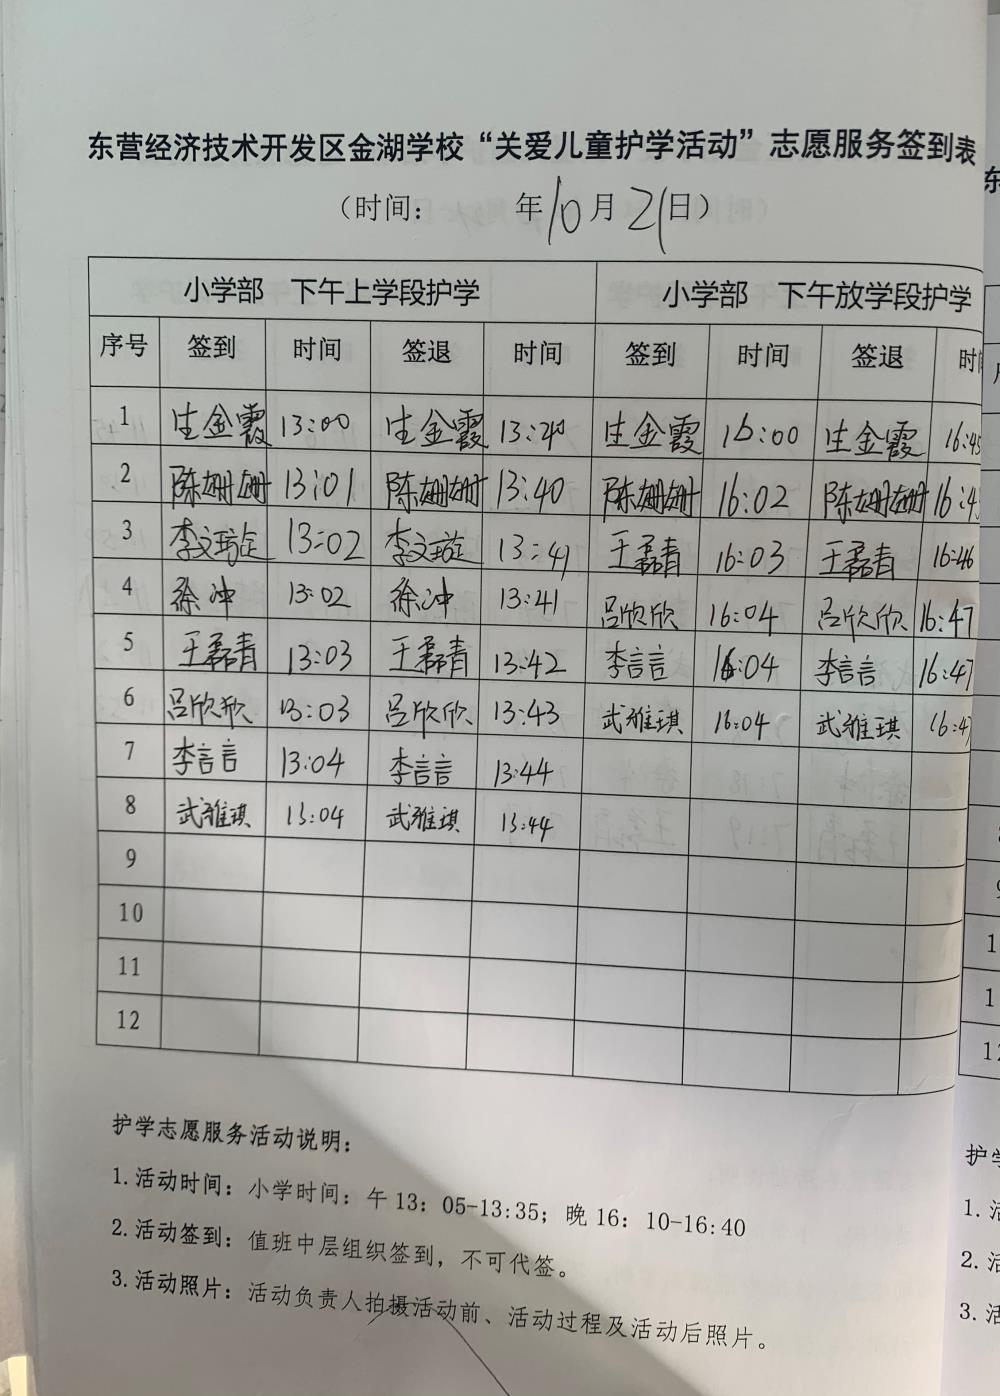 东营经济技术开发区金湖学校“关爱儿童护学活动”志愿服务签到表
（时间： 年10月21日）
小学部 下午上学段护学 小学部 下午放学段护学
序号 签到 时间 签退 时间 签到 时间 签退 时
1 生金霞 13:00 生金霞 13:40 生金霞 16:00 生金霞 16:45
2 陈姗姗 13:01 陈姗姗 13:40 陈姗姗 16:02 陈姗姗 16:4
3 李文璇 13:02 李文璇 13:41 王磊青 16:03 王磊青 16:46
4 徐冲 13:02 徐冲 13:41 吕欣欣 16:04 吕欣欣 16:47
5 王磊青 13:03 王磊青 13:42 李言言 16:04 李言言 16:47
6 吕欣欣 13:03 吕欣欣 13:43 武雅琪 16:04 武雅琪 16:4
7 李言言 13:04 李言言 13:44
8 武雅琪 13:04 武雅琪 13:44
9
10
11
12
护学志愿服务活动说明：
1.活动时间：小学时间：午13：05-13:35；晚16：10-16:40
2.活动签到：值班中层组织签到，不可代签。
3.活动照片：活动负责人拍摄活动前、活动过程及活动后照片。